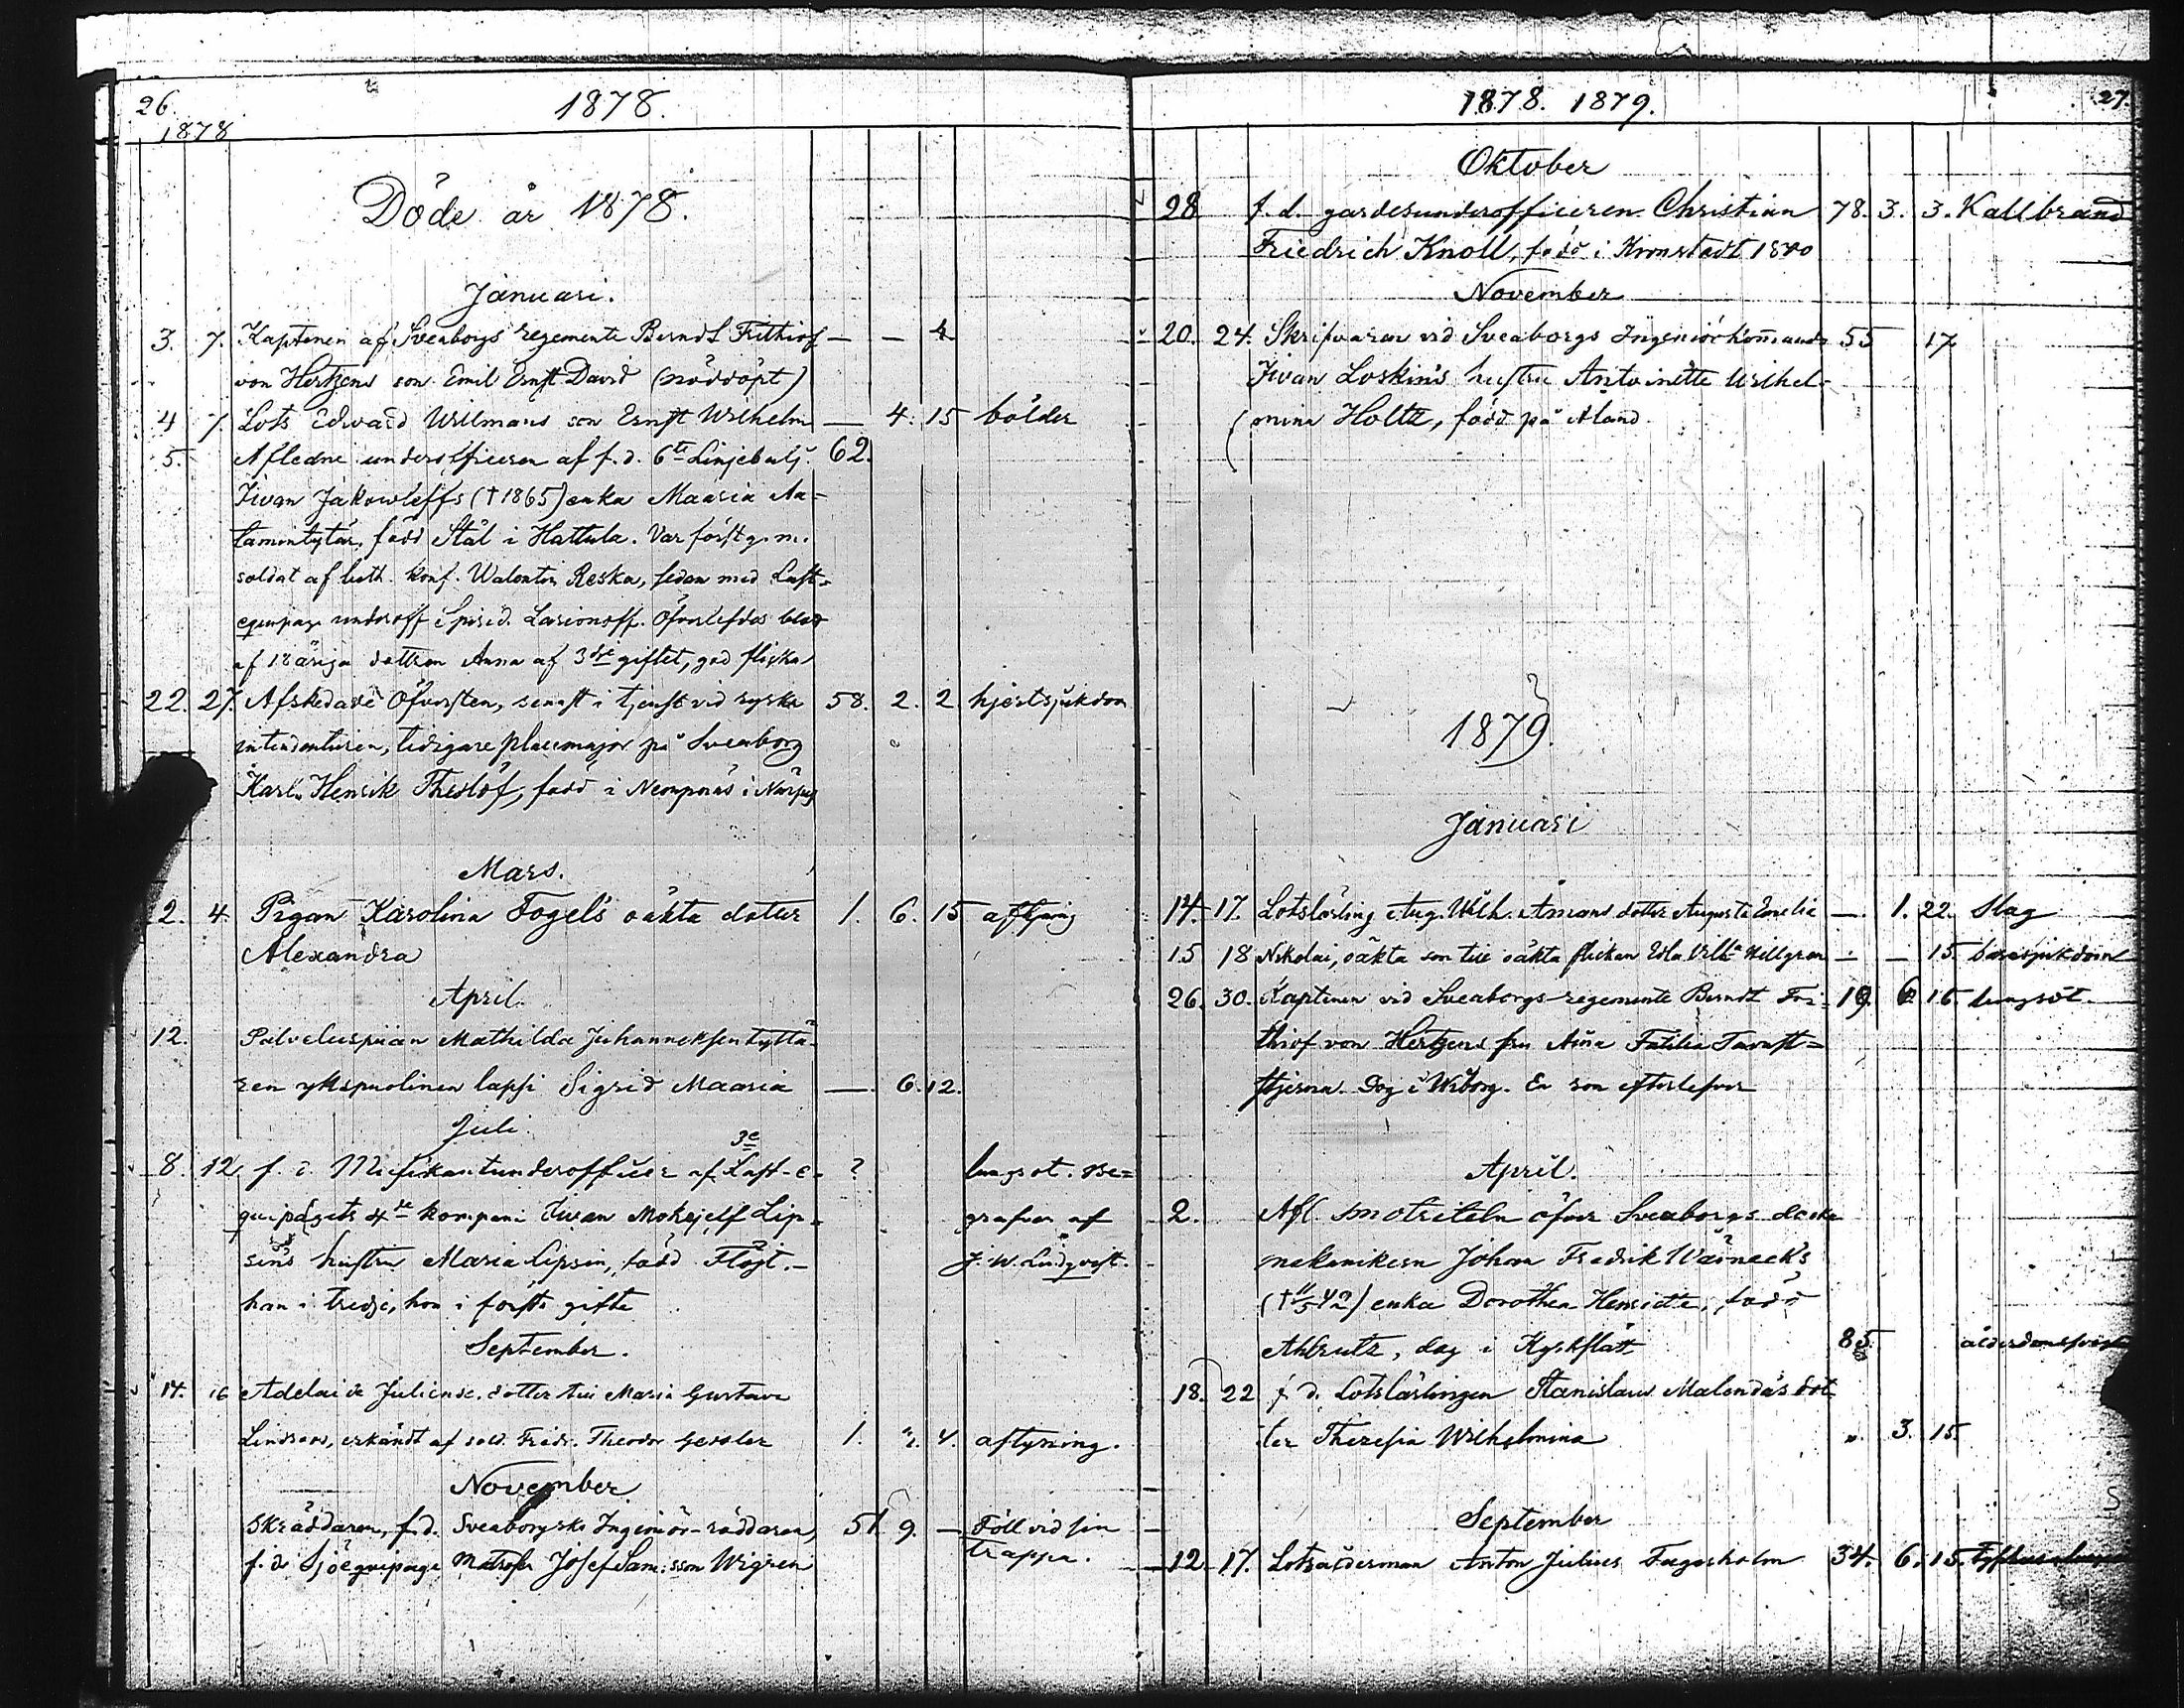 26.
1878
1878.
Döde år 1878.
Januari.
3. 7. Kaptenen af Sveaborgs regemente Berndt Frithiof — — 4
von Hertzens son Emil Ernst David (nöddöpt)
4 7. Lots Edvard Willmans son Ernst Wilhelm — 4. 15 bölder
5. Afledne underofficeren af f.d. 6te Linjebatlj. 62.
Iivan Jakowleffs (†1865) enka Maaria
född Stål i Hattula. Var först g. m.
soldat af Walentin Reska, sedan med Last-
equipage underoff Spirid. Larionoff. Öfverlefdes blott
af 18åriga dottren Anna af 3dje giftet, god flicka
22. 27. Afskedade Öfversten, senast i tjenst vid ryska 58. 2. 2 hjertsjukdom
intendenturen, tidigare placmajor på Sveaborg
Karl Henrik Theslöf, född i Nempnäs i Närpes
Mars.
2. 4. Pigan Karolina Fogel's oäkta dotter 1. 6. 15 aftyning
Alexandra
April.
12. Palveluspiian Mathilda Juhanneksentyttä-
ren ykspuolinen lapsi Sigrid Maaria — 6. 12.
Juli.
8. 12 f. d. Musikantunderofficer af 3e Last-e- ? lungsot. Be-
quipagets 4de kompani Iivan Mokejeff Lip- grafven af
sins hustru Maria Lipsin, född Flöjt.— J. W. Lindqvist.
han i tredje, hon i första gifte
September.
14. 16 Adelaide Juliena, dotter till Maria Gustava
Lindroos, erkändt af sold. Fredr. Theodor Gessler 1. 2. 4. aftyning.
November
Skräddaren, f.d. Sveaborgska Ingeniör- 51 9. — Föll vid sin
f. d. Sjöequipage Matrosen Josef Sam:sson Wigren trappa.
1878. 1879.
27.
Oktober
28 f. d. gardesunderofficeren Christian 78. 3. 3. Kallbrand
Friedrich Knoll, född i Kronstadt 1800
November
20. 24. Skrifvaren vid Sveaborgs Ingeniörkommando 55 17
Iivan Loskin's hustru Antoinette Wilhel-
mina Holtz, född på Åland.
1879.
Januari
14. 17. Lotslärling Aug. Wilh. Amans dotter Augusta Emelie — 1. 22. Slag
15 18 Nikolai, oäkta son till oäkta flickan Edla Vilh. Hellgren — — 15. barnsjukdom
26. 30. Kaptenen vid Sveaborgs-regemente Berndt Fri- 19. 6 16 lungsot.
thiof von Hertzens fru Aina Fatilia Tavast-
stjerna. Dog i Wiborg. En son efterlefver
April.
2. Afl. öfver Sveaborgs docka
mekanikern Johan Fredrik Wärneck's
(† 11/5 42) enka Dorothea Henriette, född
Ahlrutz, dog i Kyrkslätt 85. ålderdomsbrist
18. 22 f. d. Lotslärlingen Stanislaus Malenda's dot-
ter Theresia Wilhelmina „ 3. 15.
September
12. 17. Lotsålderman Anton Julius Fagerholm 34. 6. 15.